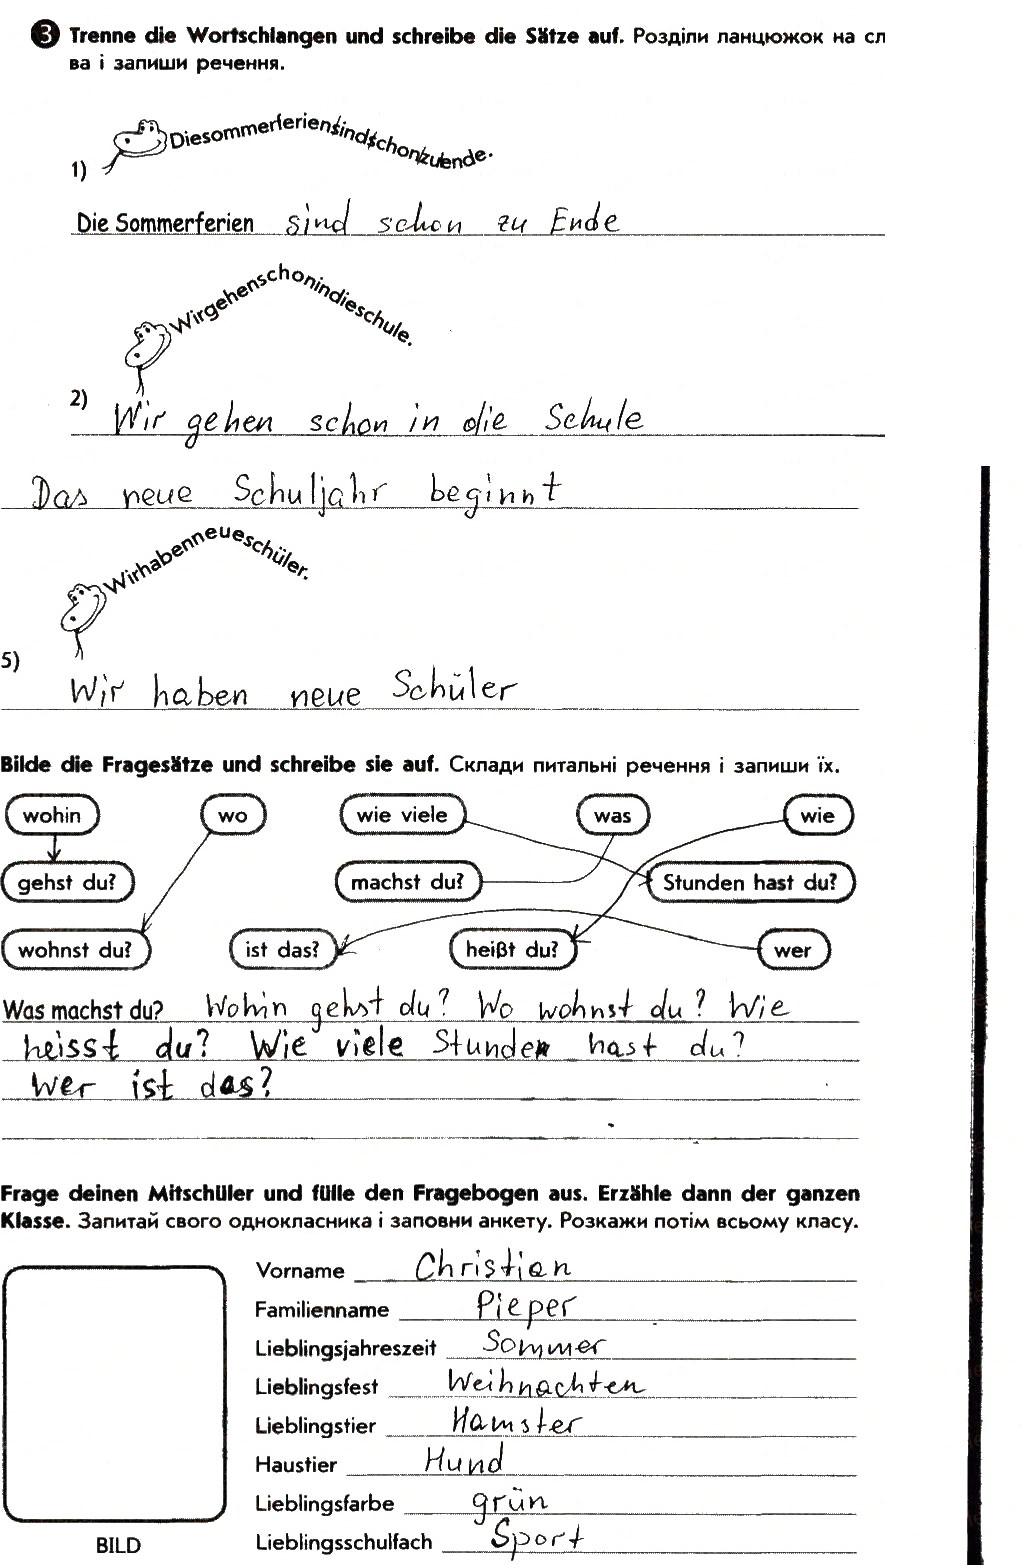 3 Trenne die Wortschlangen und schreibe die Sätze auf. Розділи ланцюжок на сл
ва і запиши речення.
Diesommerferiensindschonzuende.
1)
Die Sommerferien sind schon zu Ende
Wirgehenschonindieschule.
2)
Wir gehen schon in die Schule
Das neue Schuljahr beginnt
Wirhabenneueschüler.
5)
Wir haben neue Schüler
Bilde die Fragesätze und schreibe sie auf. Склади питальні речення і запиши їх.
wohin wo wie viele was wie
gehst du? machst du? Stunden hast du?
wohnst du? ist das? heißt du? wer
Was machst du? Wohin gehst du? Wo wohnst du? Wie
heisst du? Wie viele Stunden hast du?
Wer ist das?
Frage deinen Mitschüler und fülle den Fragebogen aus. Erzähle dann der ganzen
Klasse. Запитай свого однокласника і заповни анкету. Розкажи потім всьому класу.
Vorname Christian
Familienname Pieper
Lieblingsjahreszeit Sommer
Lieblingsfest Weihnachten
Lieblingstier Hamster
Haustier Hund
Lieblingsfarbe grün
BILD Lieblingsschulfach Sport